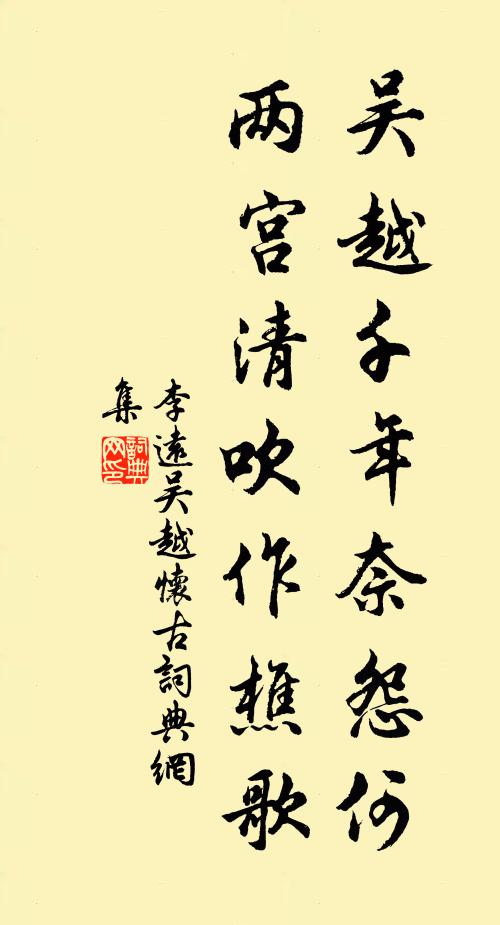 吴越千年奈怨何
两宫清吹作樵歌
李遠吴越懷古詞典網
集
詞典
网印